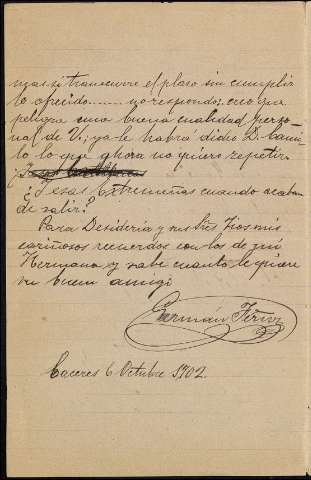 mas si transcurre el plazo sin cumplir
lo ofrecido........ no respondo; creo que
peligra una buena cualidad perso-
nal de V; ya le habrá dicho D. Cami-
lo lo que ahora no quiero repetir.
¿Y esas Extremeñas cuando acaban
de salir?
Para Desideria y sus tres tios mis
cariñosos recuerdos con los de mi
Hermano y sabe cuanto le quiere
su buen amigo
Germán
Caceres 6 Octubre 1902.